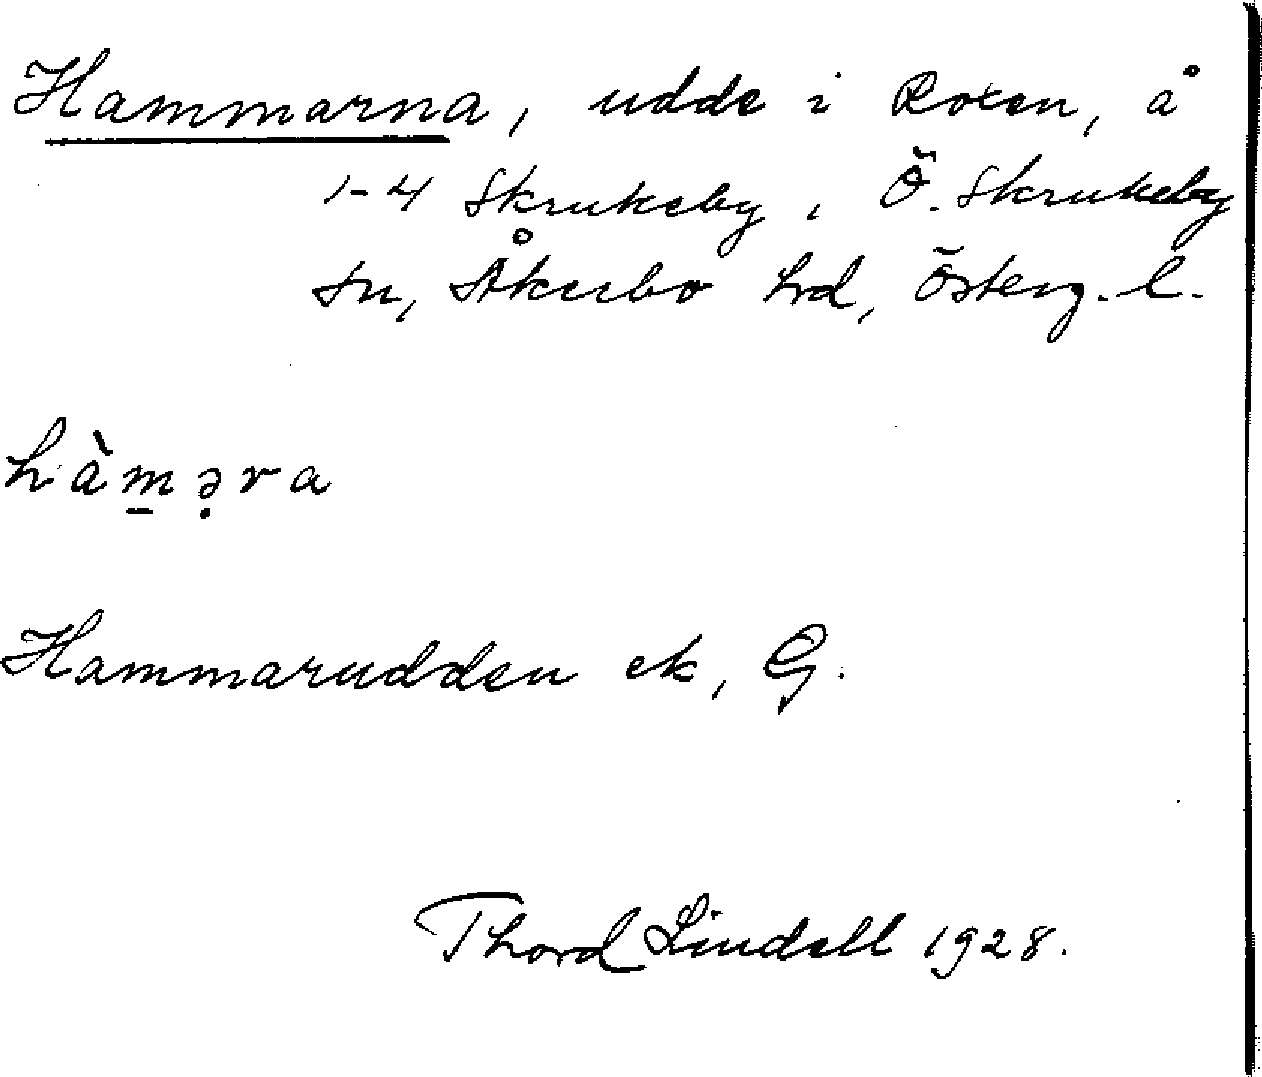 Hammarna, udde i Roxen, å
1-4 Skrukeby, Ö. Skrukeby
sn, Åkerbo hd, Österg. l.
hàm̱ə̣ra
Hammarudden ek, G.
Thord Lindell 1928.